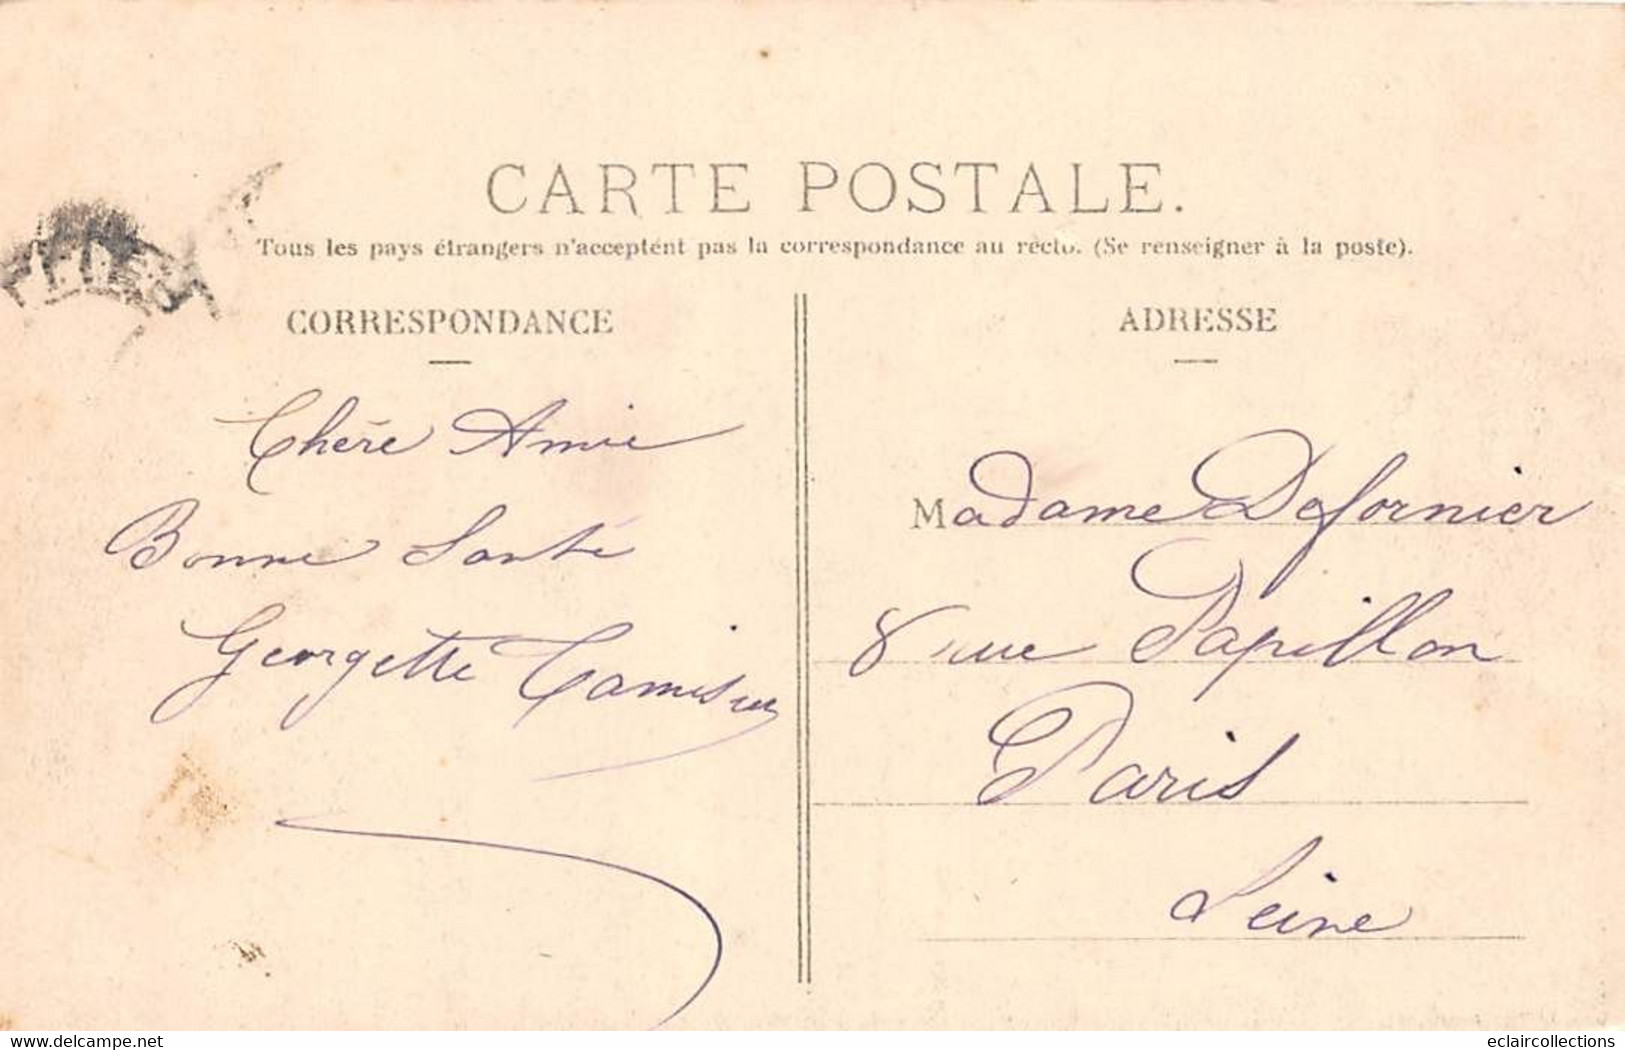 CARTE POSTALE.
Tous les pays étrangers n'acceptent pas la correspondance au recto. (Se renseigner à la poste).
CORRESPONDANCE
ADRESSE
Chère Amie
Bonne Santé
Georgette
Madame Defornier
8 rue Papillon
Paris
Seine
www.delcampe.net
eclaircollections